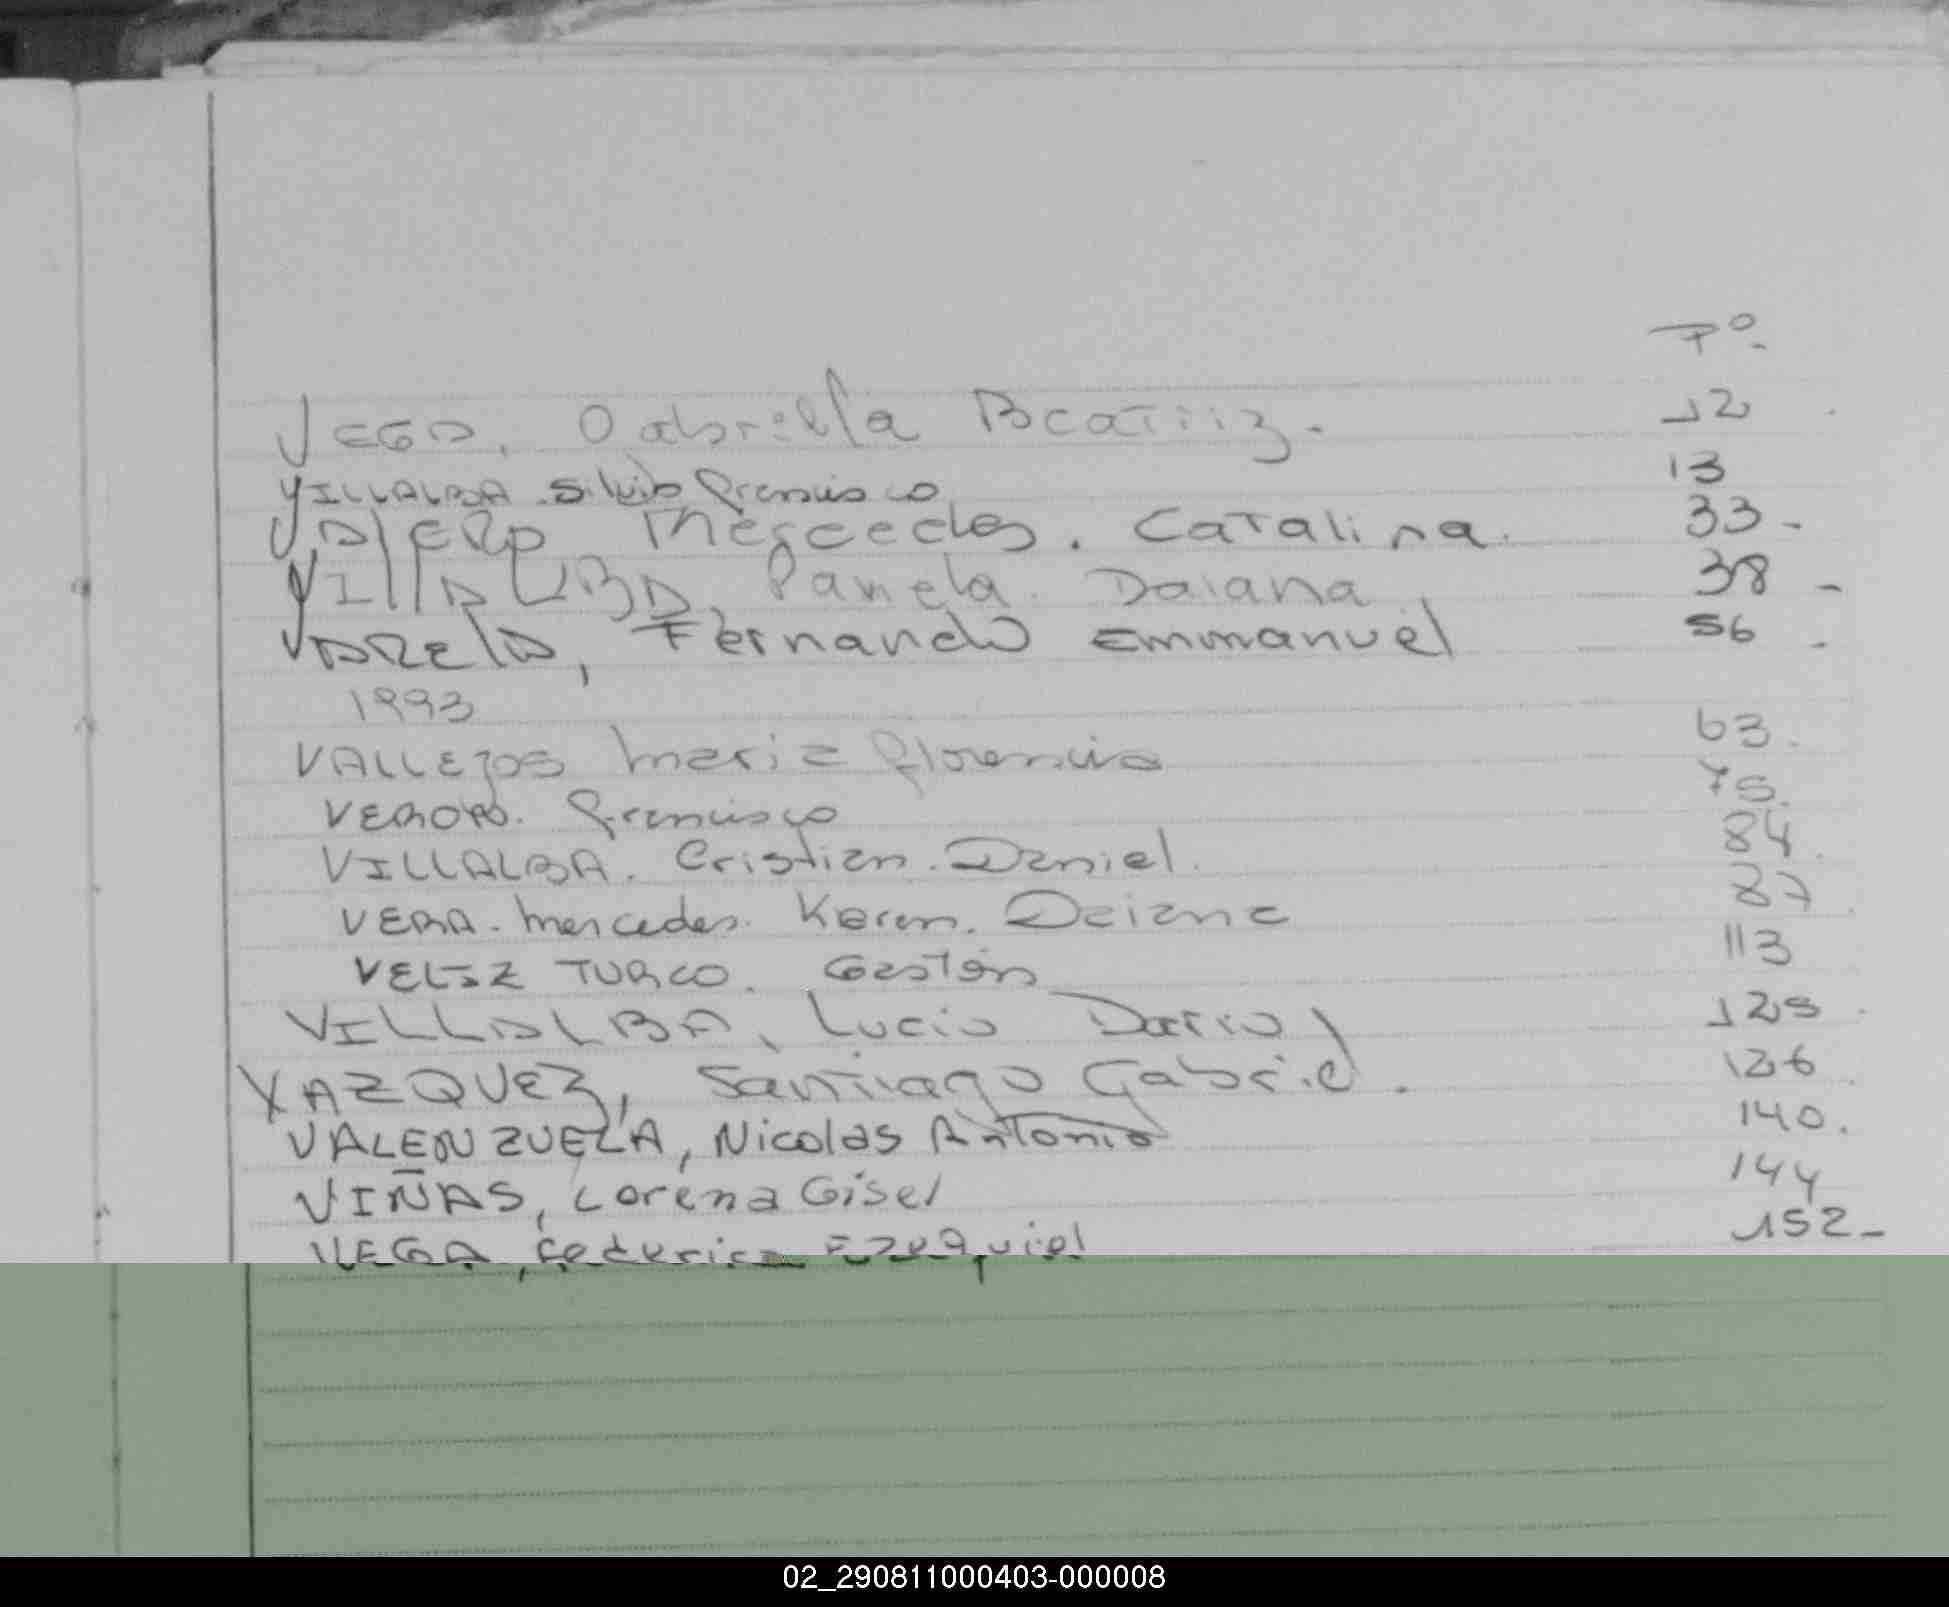 Fº
VEGA, Gabriella Beatriiz. 12
VILLALBA Silvio Francisco 13
VALERO Mercedes. Catalina. 33-
VILLALBA, Pamela Daiana 38-
VARELA, Fernando Emmanuel 56
1993
VALLEJOS Maria Florencia 63.
VERON. Francisco 75.
VILLALBA. Cristian. Daniel. 84.
VERA. Mercedes. Karen. Daiana 87.
VELIZ TURCO. Gastón 113
VILLALBA, Lucio Dario 125.
VAZQUEZ, Santiago Gabriel. 126.
VALENZUELA, Nicolas Antonio 140.
VIÑAS, Lorena Gisel 144
VEGA, Federico Ezequiel 152-
02_290811000403-000008